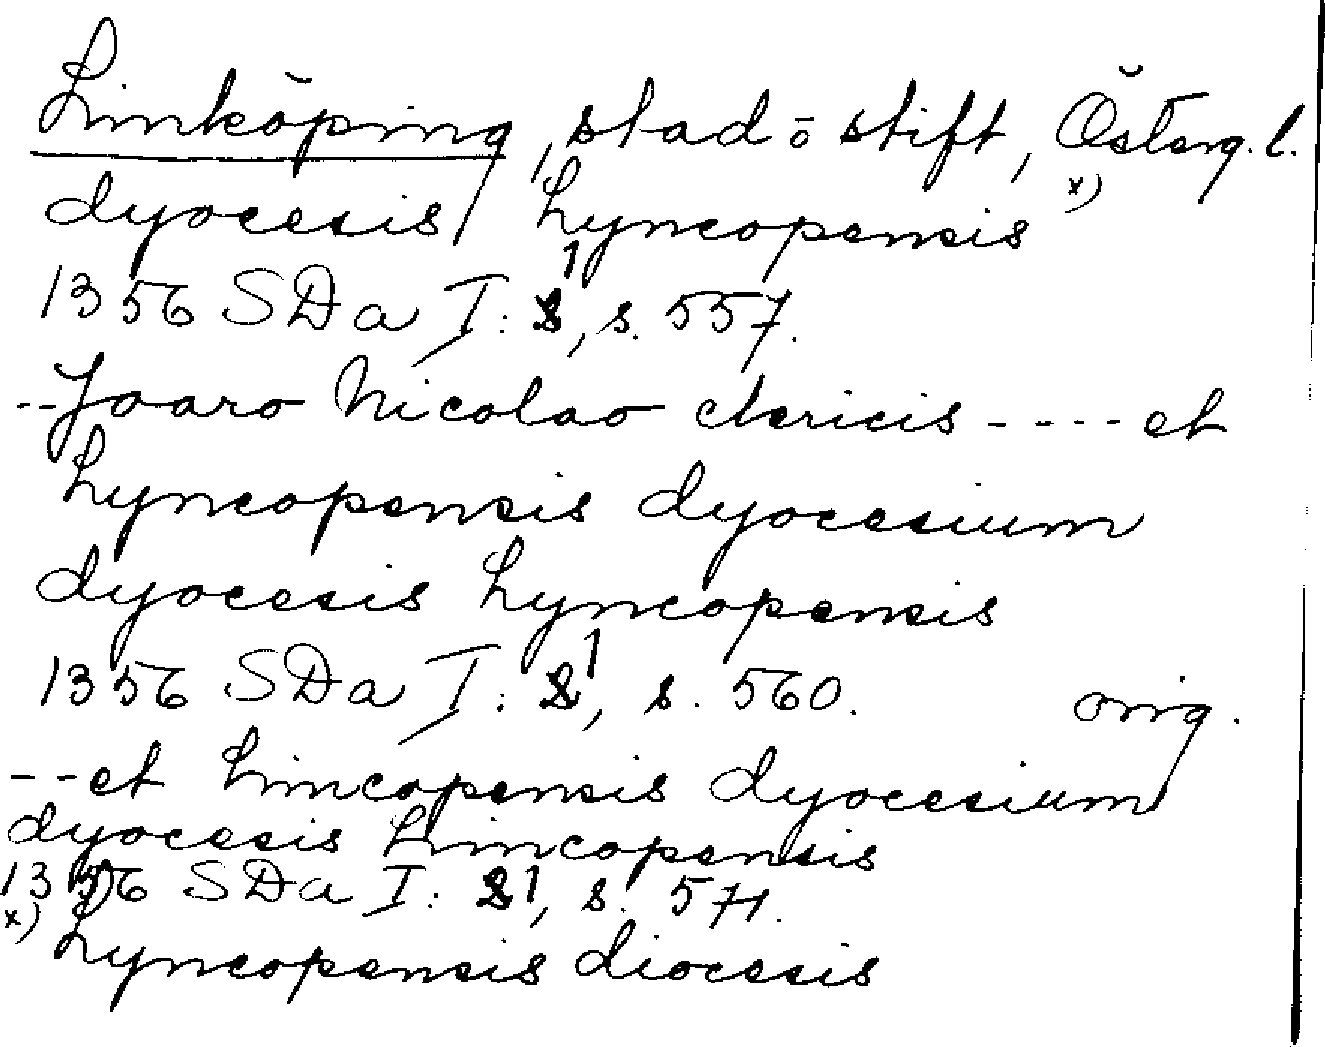 Linköping, stad o stift, Österg. l.
dyocesis Lyncopensis x)
1356 SDa I: 1, s. 557.
-- Joaro Nicolao clericis ---- et
Lyncopensis dyocesium
dyocesis Lyncopensis
1356 SDa I: 1, s. 560. orig.
-- et Lincopensis dyocesium
dyocesis Lincopensis
1356 SDa I: 1, s. 571.
x) Lyncopensis diocesis